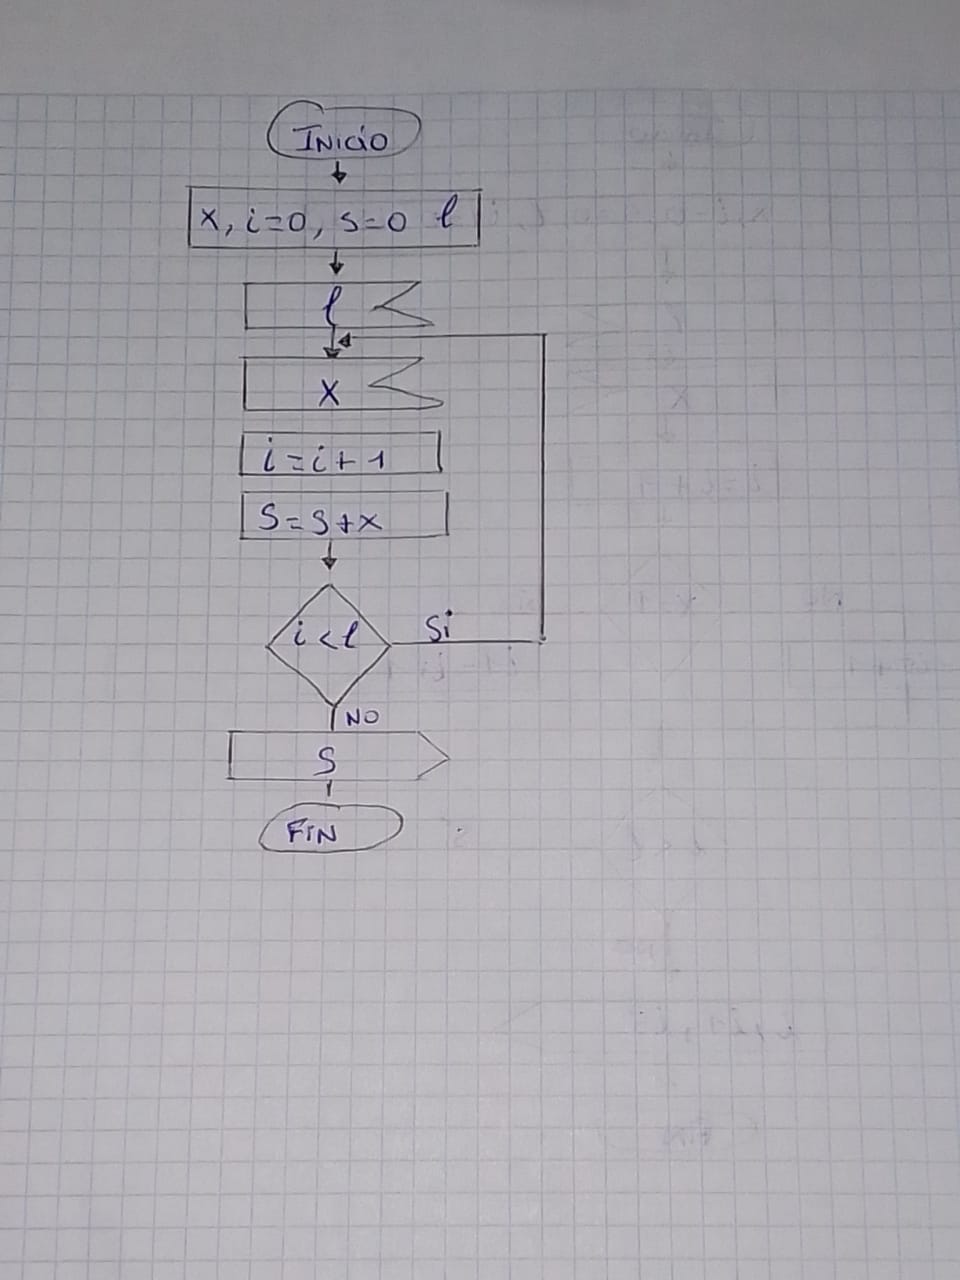 INICIO
x, i=0, s=0 l
l
x
i=i+1
S=S+x
i<l
Si
NO
S
FIN